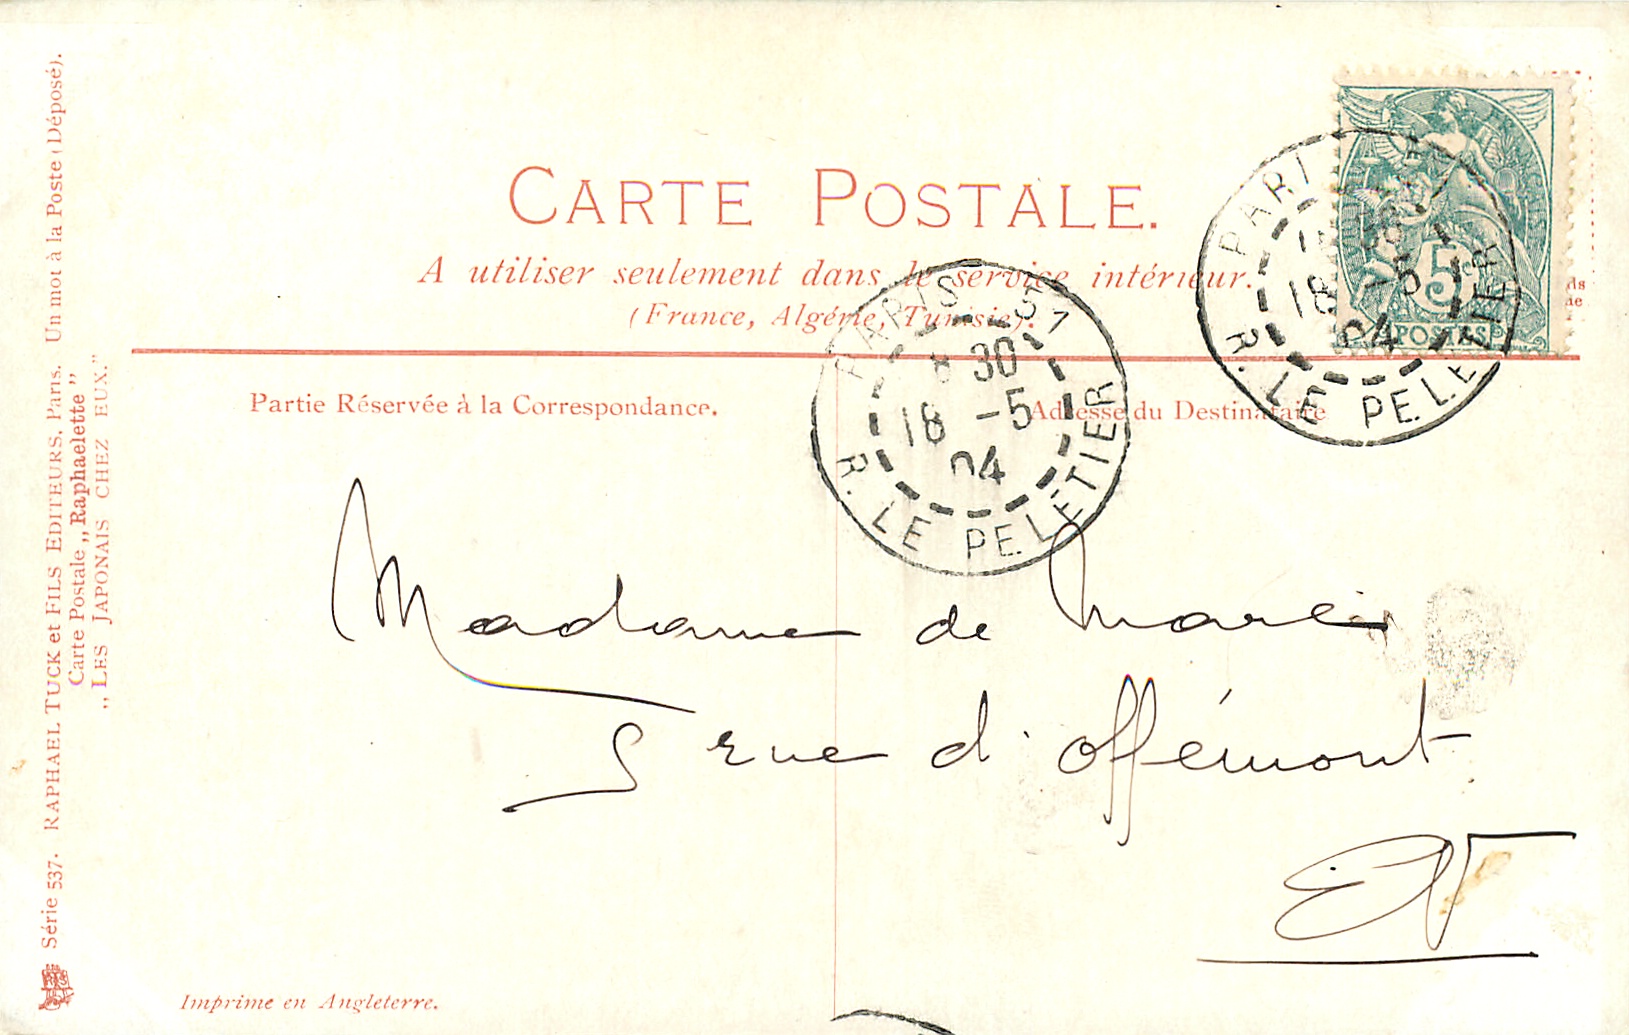 CARTE POSTALE.
A utiliser seulement dans le service intérieur.
(France, Algérie, Tunisie).
Partie Réservée à la Correspondance.
Adresse du Destinataire
PARIS 57
8 30
18 -5
04
R. LE PELETIER
PARI
18 -5
04
R. LE PELETIER
5
POSTES
Madame de
5 rue d'offémont
EV
Série 537. RAPHAEL TUCK et FILS EDITEURS, Paris. Un mot à la Poste (Déposé).
Carte Postale „Raphaelette”
„LES JAPONAIS CHEZ EUX.”
Imprime en Angleterre.